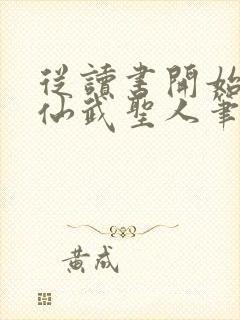 從讀書開始
仙武聖人筆
黃成